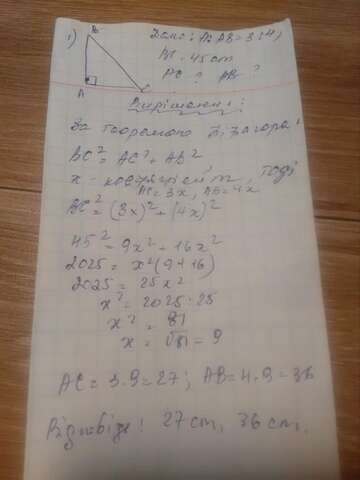 1)
B
A
C
Дано: AC:AB=3:4,
BC=45cm
AC? AB?
Вирішення:
За теоремою Піфагора:
BC²=AC²+AB²
x - коефіцієнт, тоді
AC=3x, AB=4x
BC²=(3x)²+(4x)²
45²=9x²+16x²
2025=x²(9+16)
2025=25x²
x²=2025:25
x²=81
x=√81=9
AC=3·9=27; AB=4·9=36
Відповідь: 27cm, 36cm.